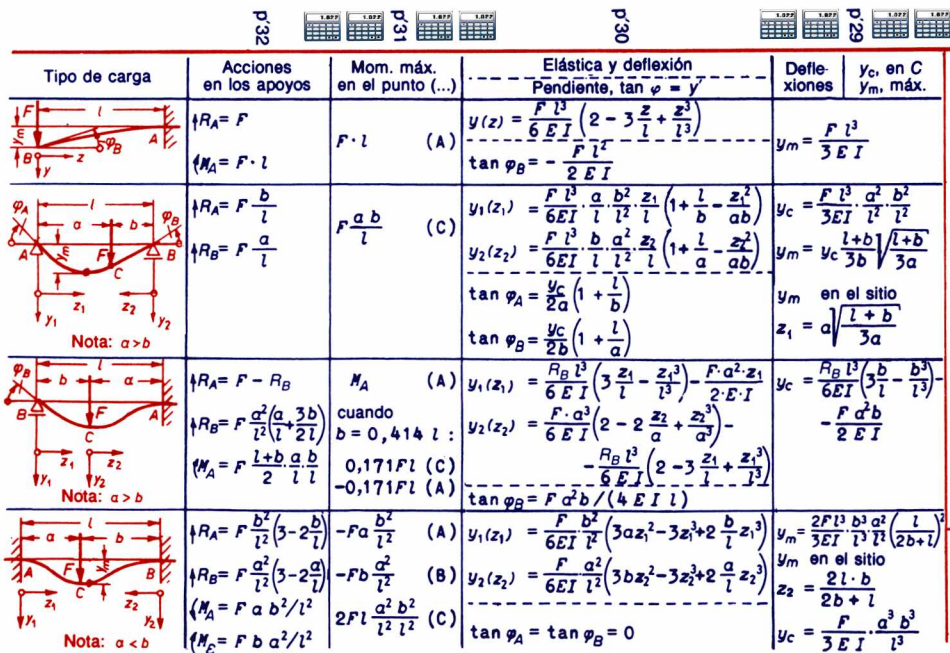 p'32 p'31 p'30 p'29
Tipo de carga
Acciones en los apoyos
Mom. máx. en el punto (...)
Elástica y deflexión
Pendiente, tan φ = y'
Deflexiones
y_c, en C
y_m, máx.
F l A y_m B φ_B z y
↑R_A = F
M_A = F · l
F · l (A)
y(z) = F l³/(6 E I) (2 − 3 z/l + z³/l³)
tan φ_B = − F l²/(2 E I)
y_m = F l³/(3 E I)
φ_A l φ_B a b F A y_m B C z₁ z₂ y₁ y₂
Nota: a>b
↑R_A = F b/l
↑R_B = F a/l
F a b/l (C)
y₁(z₁) = F l³/(6EI) · a/l · b²/l² · z₁/l (1 + l/b − z₁²/(ab))
y₂(z₂) = F l³/(6EI) · b/l · a²/l² · z₂/l (1 + l/a − z₂²/(ab))
tan φ_A = y_c/(2a) (1 + l/b)
tan φ_B = y_c/(2b) (1 + l/a)
y_c = F l³/(3EI) · a²/l² · b²/l²
y_m = y_c (l+b)/(3b) √((l+b)/(3a))
y_m en el sitio
z₁ = a√((l + b)/(3a))
φ_B l b a A B F C z₁ z₂ y₁ y₂
Nota: a>b
↑R_A = F − R_B
↑R_B = F a²/l² (a/l + 3b/(2l))
M_A = F (l+b)/2 · a/l · b/l
M_A (A)
cuando
b = 0,414 l :
0,171Fl (C)
−0,171Fl (A)
y₁(z₁) = R_B l³/(6 E I) (3 z₁/l − z₁³/l³) − F·a²·z₁/(2·E·I)
y₂(z₂) = F·a³/(6 E I) (2 − 2 z₂/a + z₂³/a³) −
− R_B l³/(6 E I) (2 − 3 z₁/l + z₁³/l³)
tan φ_B = F a²b / (4 E I l)
y_c = R_B l³/(6EI) (3 b/l − b³/l³) −
− F a²b/(2 E I)
l a b A F y_m B C z₁ z₂ y₁ y₂
Nota: a<b
↑R_A = F b²/l² (3−2 b/l)
↑R_B = F a²/l² (3−2 a/l)
M_A = F a b²/l²
M_C = F b a²/l²
−Fa b²/l² (A)
−Fb a²/l² (B)
2Fl a²/l² b²/l² (C)
y₁(z₁) = F/(6EI) · b²/l² (3az₁² − 3z₁³ + 2 b/l z₁³)
y₂(z₂) = F/(6EI) · a²/l² (3bz₂² − 3z₂³ + 2 a/l z₂³)
tan φ_A = tan φ_B = 0
y_m = 2Fl³/(3EI) · b³/l³ · a²/l² (l/(2b+l))²
y_m en el sitio
z₂ = 2l·b/(2b + l)
y_c = F/(3 E I) · a³ b³/l³